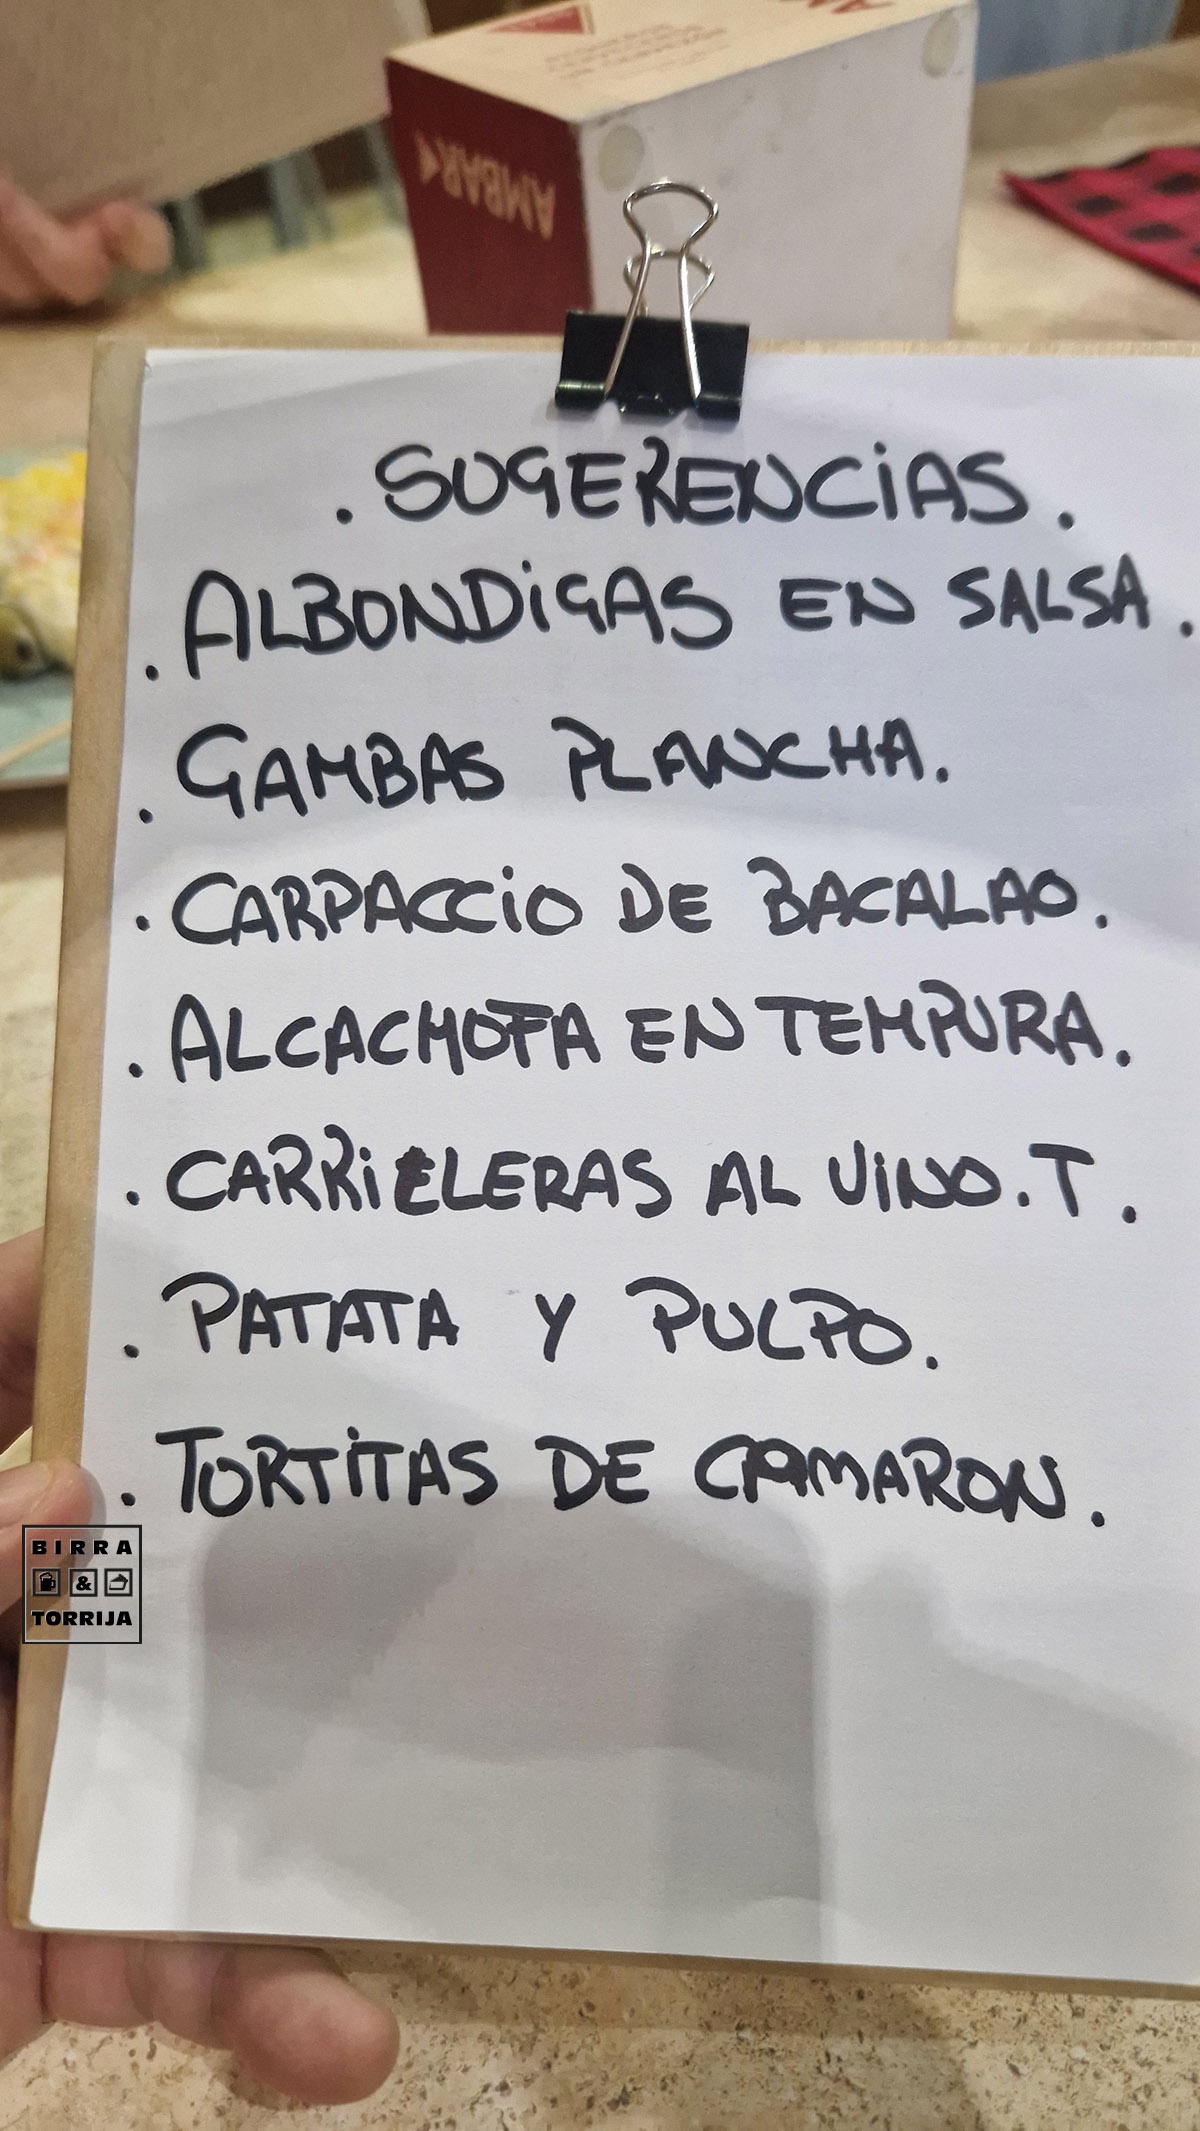 AMBAR
. SUGERENCiAS.
. ALBONDiGAS EN SALSA.
. GAMBAS PLANCHA.
. CARPACCiO DE BACALAO.
. ALCACHOFA EN TEMPURA.
. CARRiLLERAS AL ViNO.T.
. PATATA Y PULPO.
. TORTiTAS DE CAMARON.
BIRRA
&
TORRIJA